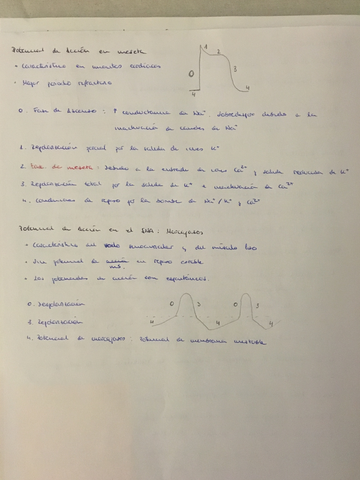 Potencial de acción en meseta
- Característico en músculos cardiacos
- Mayor periodo refractario
0 1 2 3 4 4
0. Fase de Ascenso : ↑ conductancia de Na⁺ sobrechoque debido a la
inactivación de canales de Na⁺
1. Repolarización parcial por la salida de iones K⁺
2. Fase de meseta : Debido a la entrada de iones Ca²⁺ y salida de K⁺
3. Repolarización total por la salida de K⁺ e inactivación de Ca²⁺
4. Condiciones de reposo por la bomba de Na⁺/K⁺, Ca²⁺
Potencial de acción en el SNA : Marcapasos
- Característico del nodo sinoauricular y del músculo liso
- Sin potencial de en reposo estable
- Los potenciales de acción son espontáneos.
0. Despolarización
0 3 0 3
3. Repolarización
4 4 4
4. Potencial de marcapasos : Potencial de membrana inestable